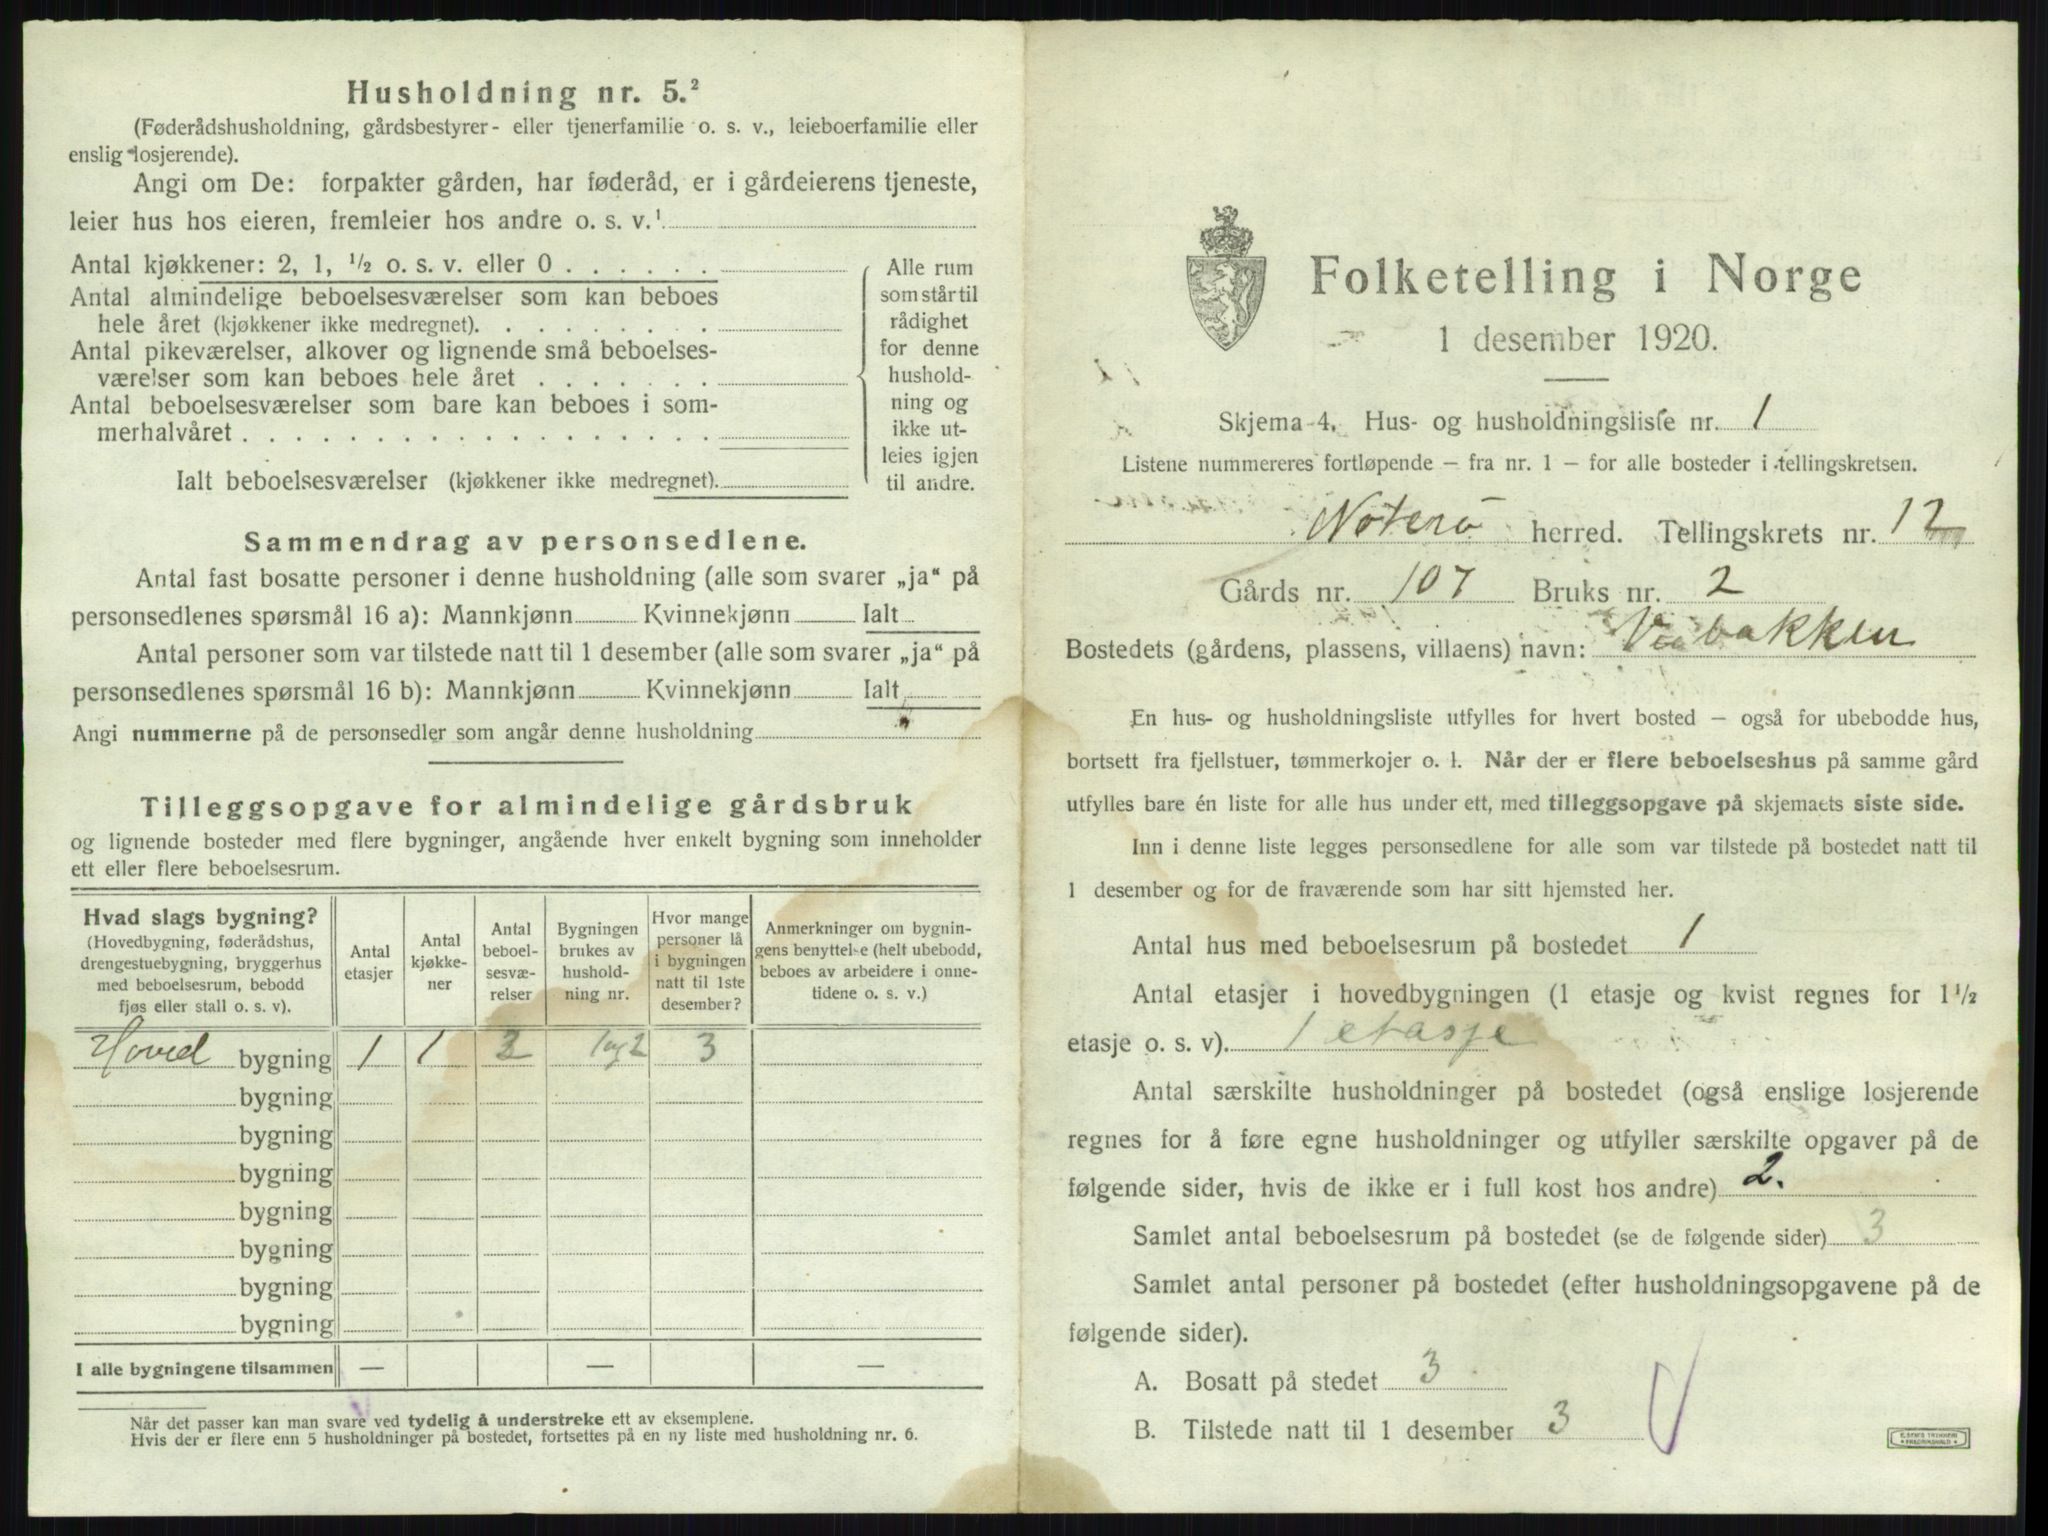 Husholdning nr. 5.²
(Føderådshusholdning, gårdsbestyrer- eller tjenerfamilie o. s. v., leieboerfamilie eller
enslig losjerende).
Angi om De: forpakter gården, har føderåd, er i gårdeierens tjeneste,
leier hus hos eieren, fremleier hos andre o. s. v.¹
Antal kjøkkener: 2, 1, ½ o. s. v. eller 0 . . . . . .
Antal almindelige beboelsesværelser som kan beboes
hele året (kjøkkener ikke medregnet). . . . . . . . .
Antal pikeværelser, alkover og lignende små beboelses-
værelser som kan beboes hele året . . . . . . .
Antal beboelsesværelser som bare kan beboes i som-
merhalvåret . . . . . . . . . . . . . . . . . .
Ialt beboelsesværelser (kjøkkener ikke medregnet).
Alle rum
som står til
rådighet
for denne
hushold-
ning og
ikke ut-
leies igjen
til andre.
Sammendrag av personsedlene.
Antal fast bosatte personer i denne husholdning (alle som svarer „ja“ på
personsedlenes spørsmål 16 a): Mannkjønn Kvinnekjønn Ialt
Antal personer som var tilstede natt til 1 desember (alle som svarer „ja“ på
personsedlenes spørsmål 16 b): Mannkjønn Kvinnekjønn Ialt
Angi nummerne på de personsedler som angår denne husholdning
Tilleggsopgave for almindelige gårdsbruk
og lignende bosteder med flere bygninger, angående hver enkelt bygning som inneholder
ett eller flere beboelsesrum.
Hvad slags bygning?
(Hovedbygning, føderådshus,
drengestuebygning, bryggerhus
med beboelsesrum, bebodd
fjøs eller stall o. s. v).
Antal
etasjer
Antal
kjøkke-
ner
Antal
beboel-
sesvæ-
relser
Bygningen
brukes av
hushold-
ning nr.
Hvor mange
personer lå
i bygningen
natt til 1ste
desember?
Anmerkninger om bygnin-
gens benyttelse (helt ubebodd,
beboes av arbeidere i onne-
tidene o. s. v.)
Hoved bygning 1 1 3 1 og 2 3
bygning
bygning
bygning
bygning
bygning
bygning
bygning
I alle bygningene tilsammen — — —
Når det passer kan man svare ved tydelig å understreke ett av eksemplene.
Hvis der er flere enn 5 husholdninger på bostedet, fortsettes på en ny liste med husholdning nr. 6.
Folketelling i Norge
1 desember 1920.
Skjema 4. Hus- og husholdningsliste nr. 1
Listene nummereres fortløpende – fra nr. 1 – for alle bosteder i tellingskretsen.
Nøterø herred. Tellingskrets nr. 12
Gårds nr. 107 Bruks nr. 2
Bostedets (gårdens, plassens, villaens) navn:
En hus- og husholdningsliste utfylles for hvert bosted – også for ubebodde hus,
bortsett fra fjellstuer, tømmerkojer o. l. Når der er flere beboelseshus på samme gård
utfylles bare én liste for alle hus under ett, med tilleggsopgave på skjemaets siste side.
Inn i denne liste legges personsedlene for alle som var tilstede på bostedet natt til
1 desember og for de fraværende som har sitt hjemsted her.
Antal hus med beboelsesrum på bostedet 1
Antal etasjer i hovedbygningen (1 etasje og kvist regnes for 1½
etasje o. s. v). 1 etasje
Antal særskilte husholdninger på bostedet (også enslige losjerende
regnes for å føre egne husholdninger og utfyller særskilte opgaver på de
følgende sider, hvis de ikke er i full kost hos andre) 2.
Samlet antal beboelsesrum på bostedet (se de følgende sider) 3
Samlet antal personer på bostedet (efter husholdningsopgavene på de
følgende sider).
A. Bosatt på stedet 3
B. Tilstede natt til 1 desember 3